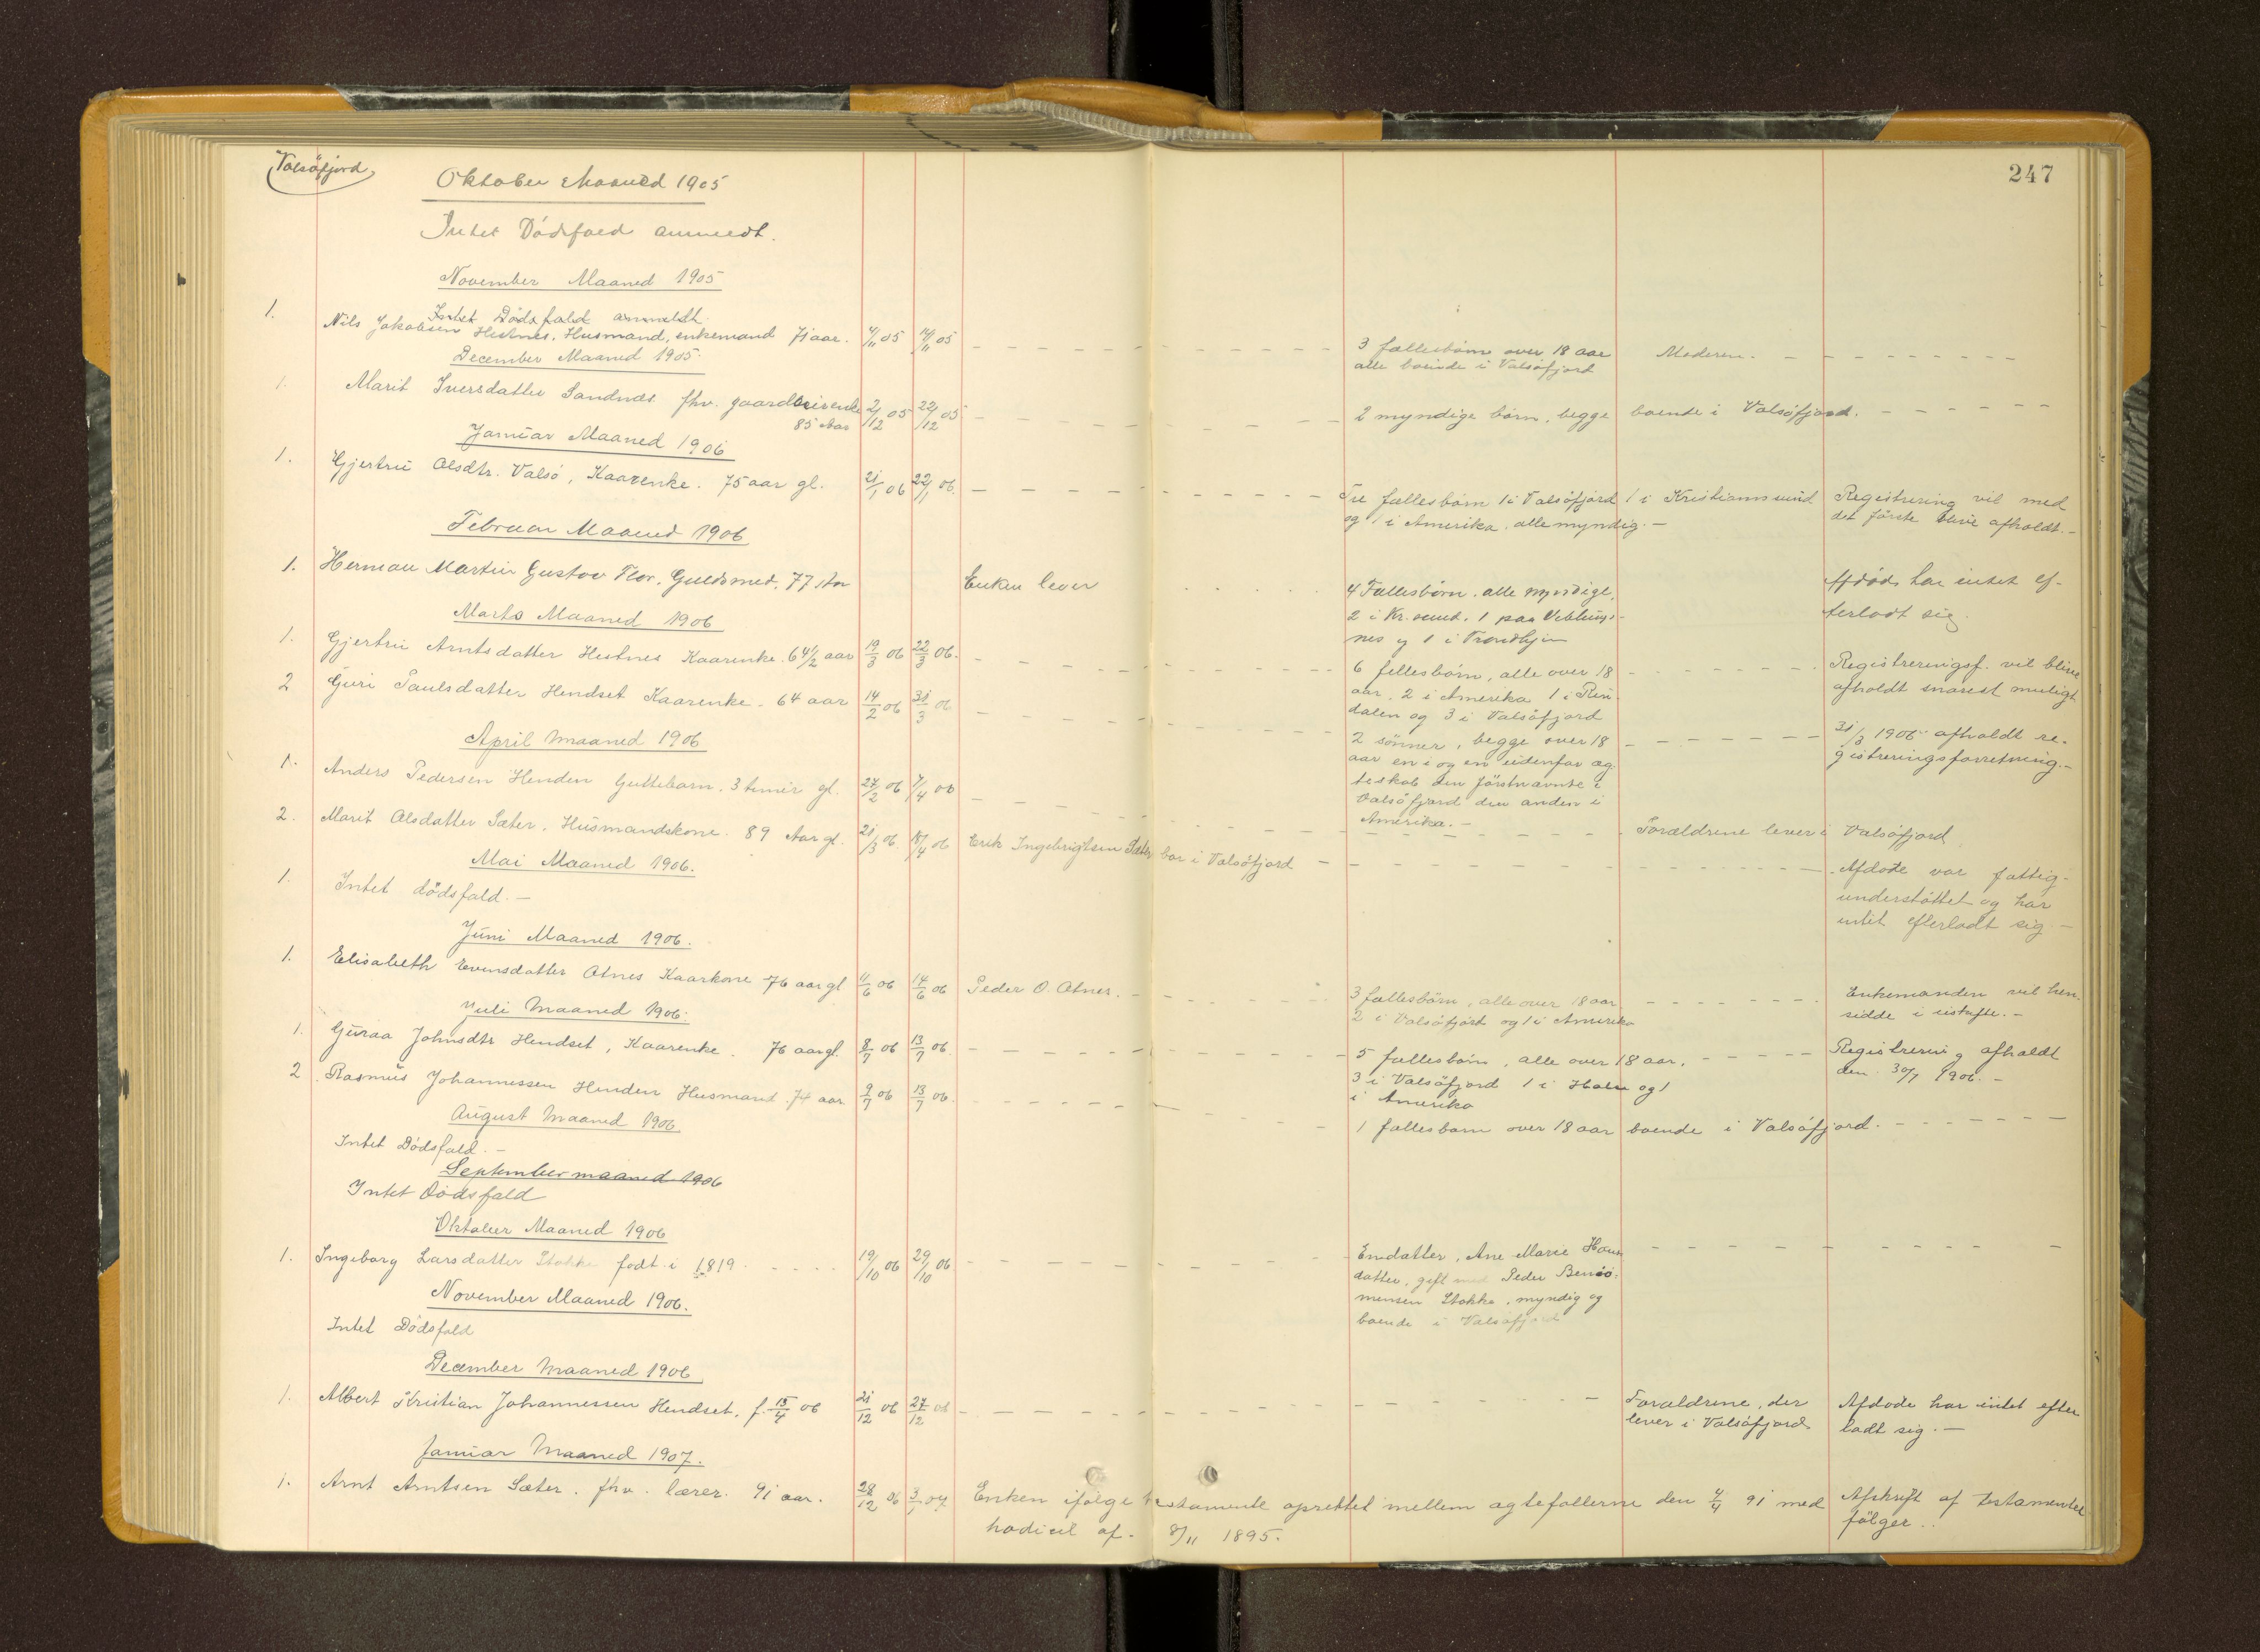 Valsöfjord
247
Oktober Maaned 1905
Intet Dödsfald anmeldt.
November Maaned 1905
Intet Dödsfald anmeldt.
1. Nils Jakobsen Hestnes, Husmand, enkemand 71 aar. 4/11 05 14/11 05 3 fællesbörn over 18 aar Moderen.
alle boende i Valsöfjord
December Maaned 1905.
1. Marit Iversdatter Sandnæs fhv. gaardbeierenke 2/12 05 22/12 05 2 myndige börn, begge boende i Valsöfjord.
85 Aar
Januar Maaned 1906
1. Gjertru Olsdtr. Valsö, Kaarenke. 75 aar gl. 21/1 06 22/1 06. Tre fællesbörn 1 i Valsöfjord 1 i Kristianssund Registrering vil med
og 1 i Amerika, alle myndig. det förste blive afholdt.
Februar Maaned 1906
1. Herman Martin Gustav Flor, Guldsmed, 77 Aar Enken lever 4 Fællesbörn, alle myndige, Afdöde har intet ef-
2 i Kr.sund, 1 paa Veblungs- terladt sig.
nes og 1 i Trondhjem
Marts Maaned 1906
1. Gjertru Arntsdatter Hestnes Kaarenke. 64 1/2 aar 19/3 06 22/3 06. 6 fellesbörn, alle over 18 Registreringsf. vil blive
aar, 2 i Amerika 1 i Rin- afholdt snarest muligt
dalen og 3 i Valsöfjord
2 Guri Paulsdatter Hendset Kaarenke. 64 aar 14/2 06 31/3 06 2 sönner, begge over 18 31/3 1906 afholdt re-
aar en i og en udenfor æg- gistreringsforretning.
teskab den förstnævnte i
Valsöfjord den anden i
Amerika.
April Maaned 1906
1. Anders Pedersen Henden Guttebarn. 3 timer gl. 27/2 06 7/4 06 Forældrene lever i Valsöfjord
2. Marit Olsdatter Sæter, Husmandskone. 89 Aar gl. 21/3 06. 18/4 06 Erik Ingebrigtsen Sæter bor i Valsöfjord Afdöde var fattig-
understöttet og har
intet efterladt sig
Mai Maaned 1906.
1. Intet dödsfald.
Juni Maaned 1906.
1. Elisabeth Evensdatter Otnes Kaarkone 76 aar gl 11/6 06 14/6 06 Peder O. Otnes. 3 fællesbörn, alle over 18 aar Enkemanden vil hen-
2 i Valsöfjord og 1 i Amerika sidde i uskifte.
Juli Maaned 1906.
1. Guraa Johnsdtr Hendset, Kaarenke. 76 aar gl. 8/7 06 13/7 06. 5 fællesbörn, alle over 18 aar. Registrering afholdt
3 i Valsöfjord 1 i Halse og 1 den 30/7 1906.
i Amerika
2 Rasmus Johannessen Henden Husmand. 74 aar 9/7 06 13/7 06. 1 fællesbarn over 18 aar boende i Valsöfjord.
August Maaned 1906
Intet Dödsfald.
September maaned 1906
Intet Dödsfald
Oktober Maaned 1906
1. Ingeborg Larsdatter Stokke födt i 1819. 19/10 06 29/10 06 En datter, Ane Marie Hans
datter, gift med Peder
Stokke, myndig og
boende i Valsöfjord
November Maaned 1906.
Intet Dödsfald
December Maaned 1906
1. Albert Kristian Johannessen Hendset, f. 13/4 06 21/12 06 27/12 06 Forældrene, der Afdöde har intet efter
lever i Valsöfjord. ladt sig.
Januar Maaned 1907.
1. Arnt Arntsen Sæter. fhv. lærer. 91 aar. 28/12 06 3/1 07 Enken ifölge testamente oprettet mellem ægtefællerne den 4/4 91 med Afskrift af testamentet
kodicil af. 8/11 1895. fölger.